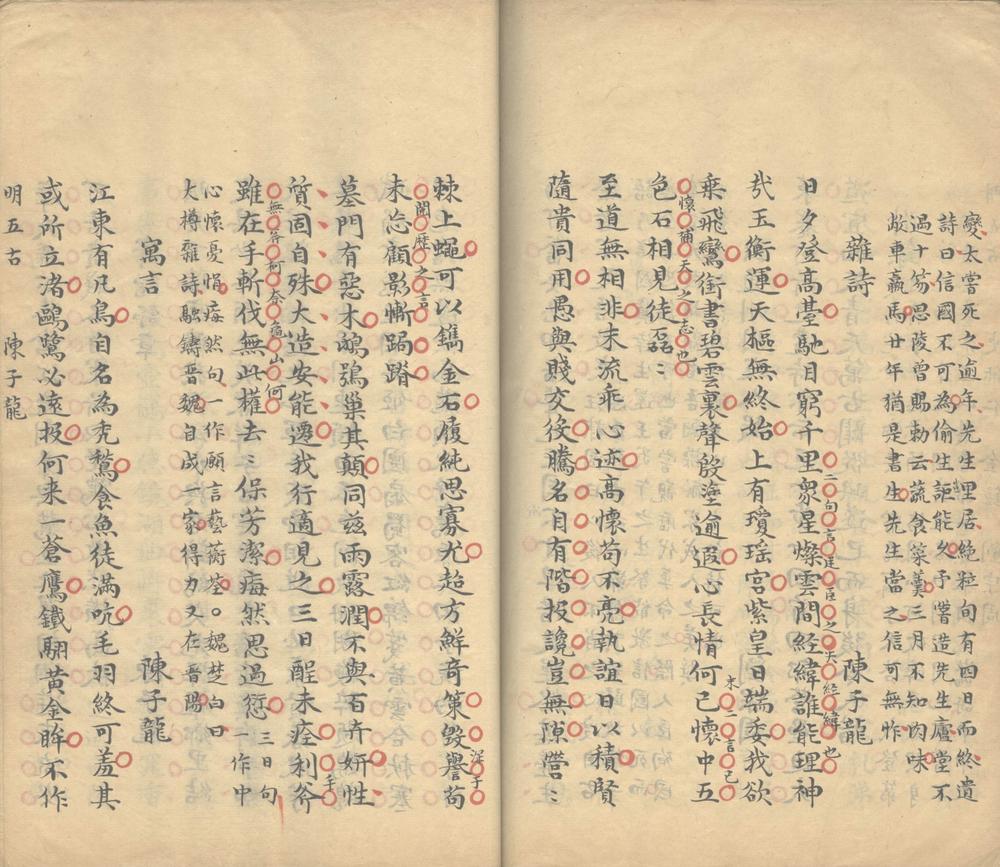 變太嘗死之逾年先生里居絕粒旬有四日而終遺
詩曰信國不可為偷生詎能久予嘗造先生廬堂不
過十笏思陵曾賜勅云蔬食菜羹三月不知肉味
敝車羸馬廿年猶是書生先生當之信可無怍
雜詩 陳子龍
日夕登高臺馳目窮千里眾星燦雲間經緯誰能理神
二句言達官之失經緯也
哉玉衡運天樞無終始上有瓊瑤宮紫皇日端委我欲
乘飛鸞銜書碧雲裏聲殷塗逾遐心長情何已懷中五
末二言己
懷補天之志也
色石相見徒磊〻
至道無相非末流乖心迹高懷苟不亮執誼日以積賢
隨貴同用愚與賤交役騰名自有階投讒豈無隙營〻
棘上蠅可以鐫金石履純思寡尤超方鮮奇策毀譽苟
深于
閱歷之言
未忘顧影慚跼蹐
墓門有惡木鴟鴞巢其顛同茲雨露潤不與百卉妍性
質固自殊大造安能遷我行適見之三日酲未痊利斧
手
無斧柯奈龜山何
雖在手斬伐無此權去〻保芳潔痗然思過愆 三日句
一作中
心懷憂悁痗然句一作願言藝蘅荃。魏楚白曰
大樽雜詩融鑄晉魏自成一家得力又在晉陽
寓言 陳子龍
江東有凡鳥自名為禿鶖食魚徒滿吭毛羽終可羞其
或所立渚鷗鷺必遠投何来一蒼鷹鐵翮黃金眸不作
明五古 陳子龍